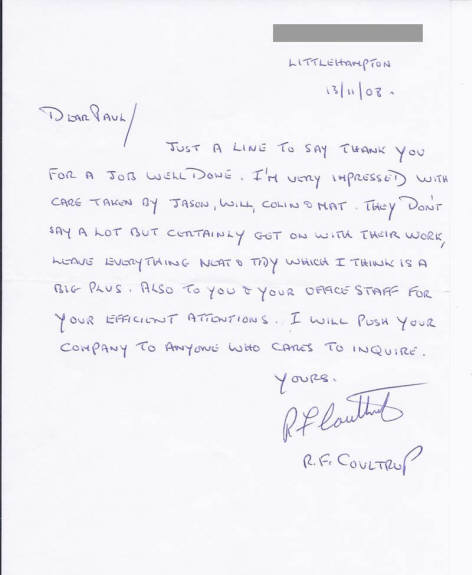 LITTLEHAMPTON
13/11/08.
DEAR PAUL/
JUST A LINE TO SAY THANK YOU
FOR A JOB WELL DONE. I'M VERY IMPRESSED WITH
CARE TAKEN BY JASON, WILL, COLIN & MAT. THEY DON'T
SAY A LOT BUT CERTAINLY GET ON WITH THEIR WORK,
LEAVE EVERYTHING NEAT & TIDY WHICH I THINK IS A
BIG PLUS. ALSO TO YOU & YOUR OFFICE STAFF FOR
YOUR EFFICIENT ATTENTIONS. I WILL PUSH YOUR
COMPANY TO ANYONE WHO CARES TO INQUIRE.
YOURS.
R F Coultrup
R.F. COULTRUP